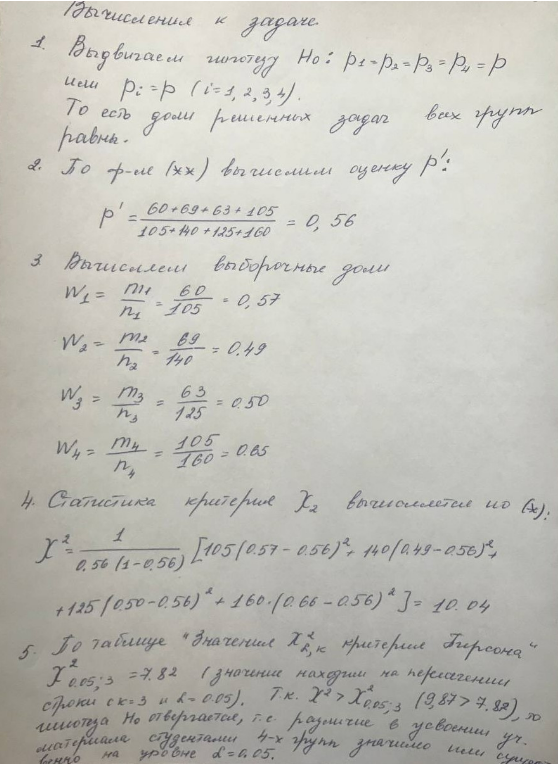 Вычисления к задаче.
1. Выдвигаем гипотезу H0: p1=p2=p3=p4=p
или pi=p (i=1,2,3,4).
То есть доли решенных задач всех групп
равны.
2. По ф-ле (xx) вычислим оценку p':
p' = (60+69+63+105)/(105+140+125+160) = 0,56
3. Вычисляем выборочные доли
W1 = m1/n1 = 60/105 = 0,57
W2 = m2/n2 = 69/140 = 0.49
W3 = m3/n3 = 63/125 = 0.50
W4 = m4/n4 = 105/160 = 0.65
4. Статистика критерия X2 вычисляется по (x):
X² = 1/(0.56(1-0.56)) [105(0.57-0.56)²+140(0.49-0.56)²+
+125(0.50-0.56)²+160·(0.66-0.56)²]=10.04
5. По таблице "Значения X²α,k критерия Пирсона"
X²0.05;3 =7.82 (значение находим на пересечении
строки с k=3 и α=0.05). Т.к. X²>X²0.05;3 (9,87>7.82), то
гипотеза H0 отвергается, т.е. различие в усвоении уч.
материала студентами 4-х групп значимо или сущест-
венно на уровне α=0.05.